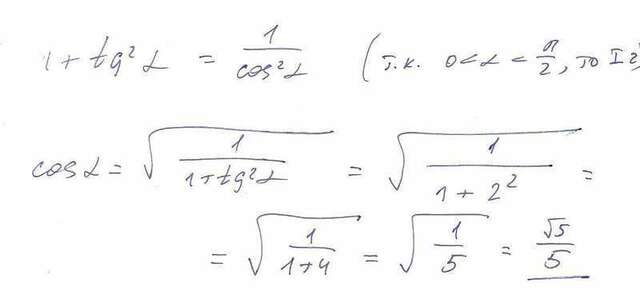 1 + tg²α = 1/cos²α (т.к. 0 < α < π/2, то I
cos α = √(1/(1+tg²α)) = √(1/(1+2²)) =
= √(1/(1+4)) = √(1/5) = √5/5